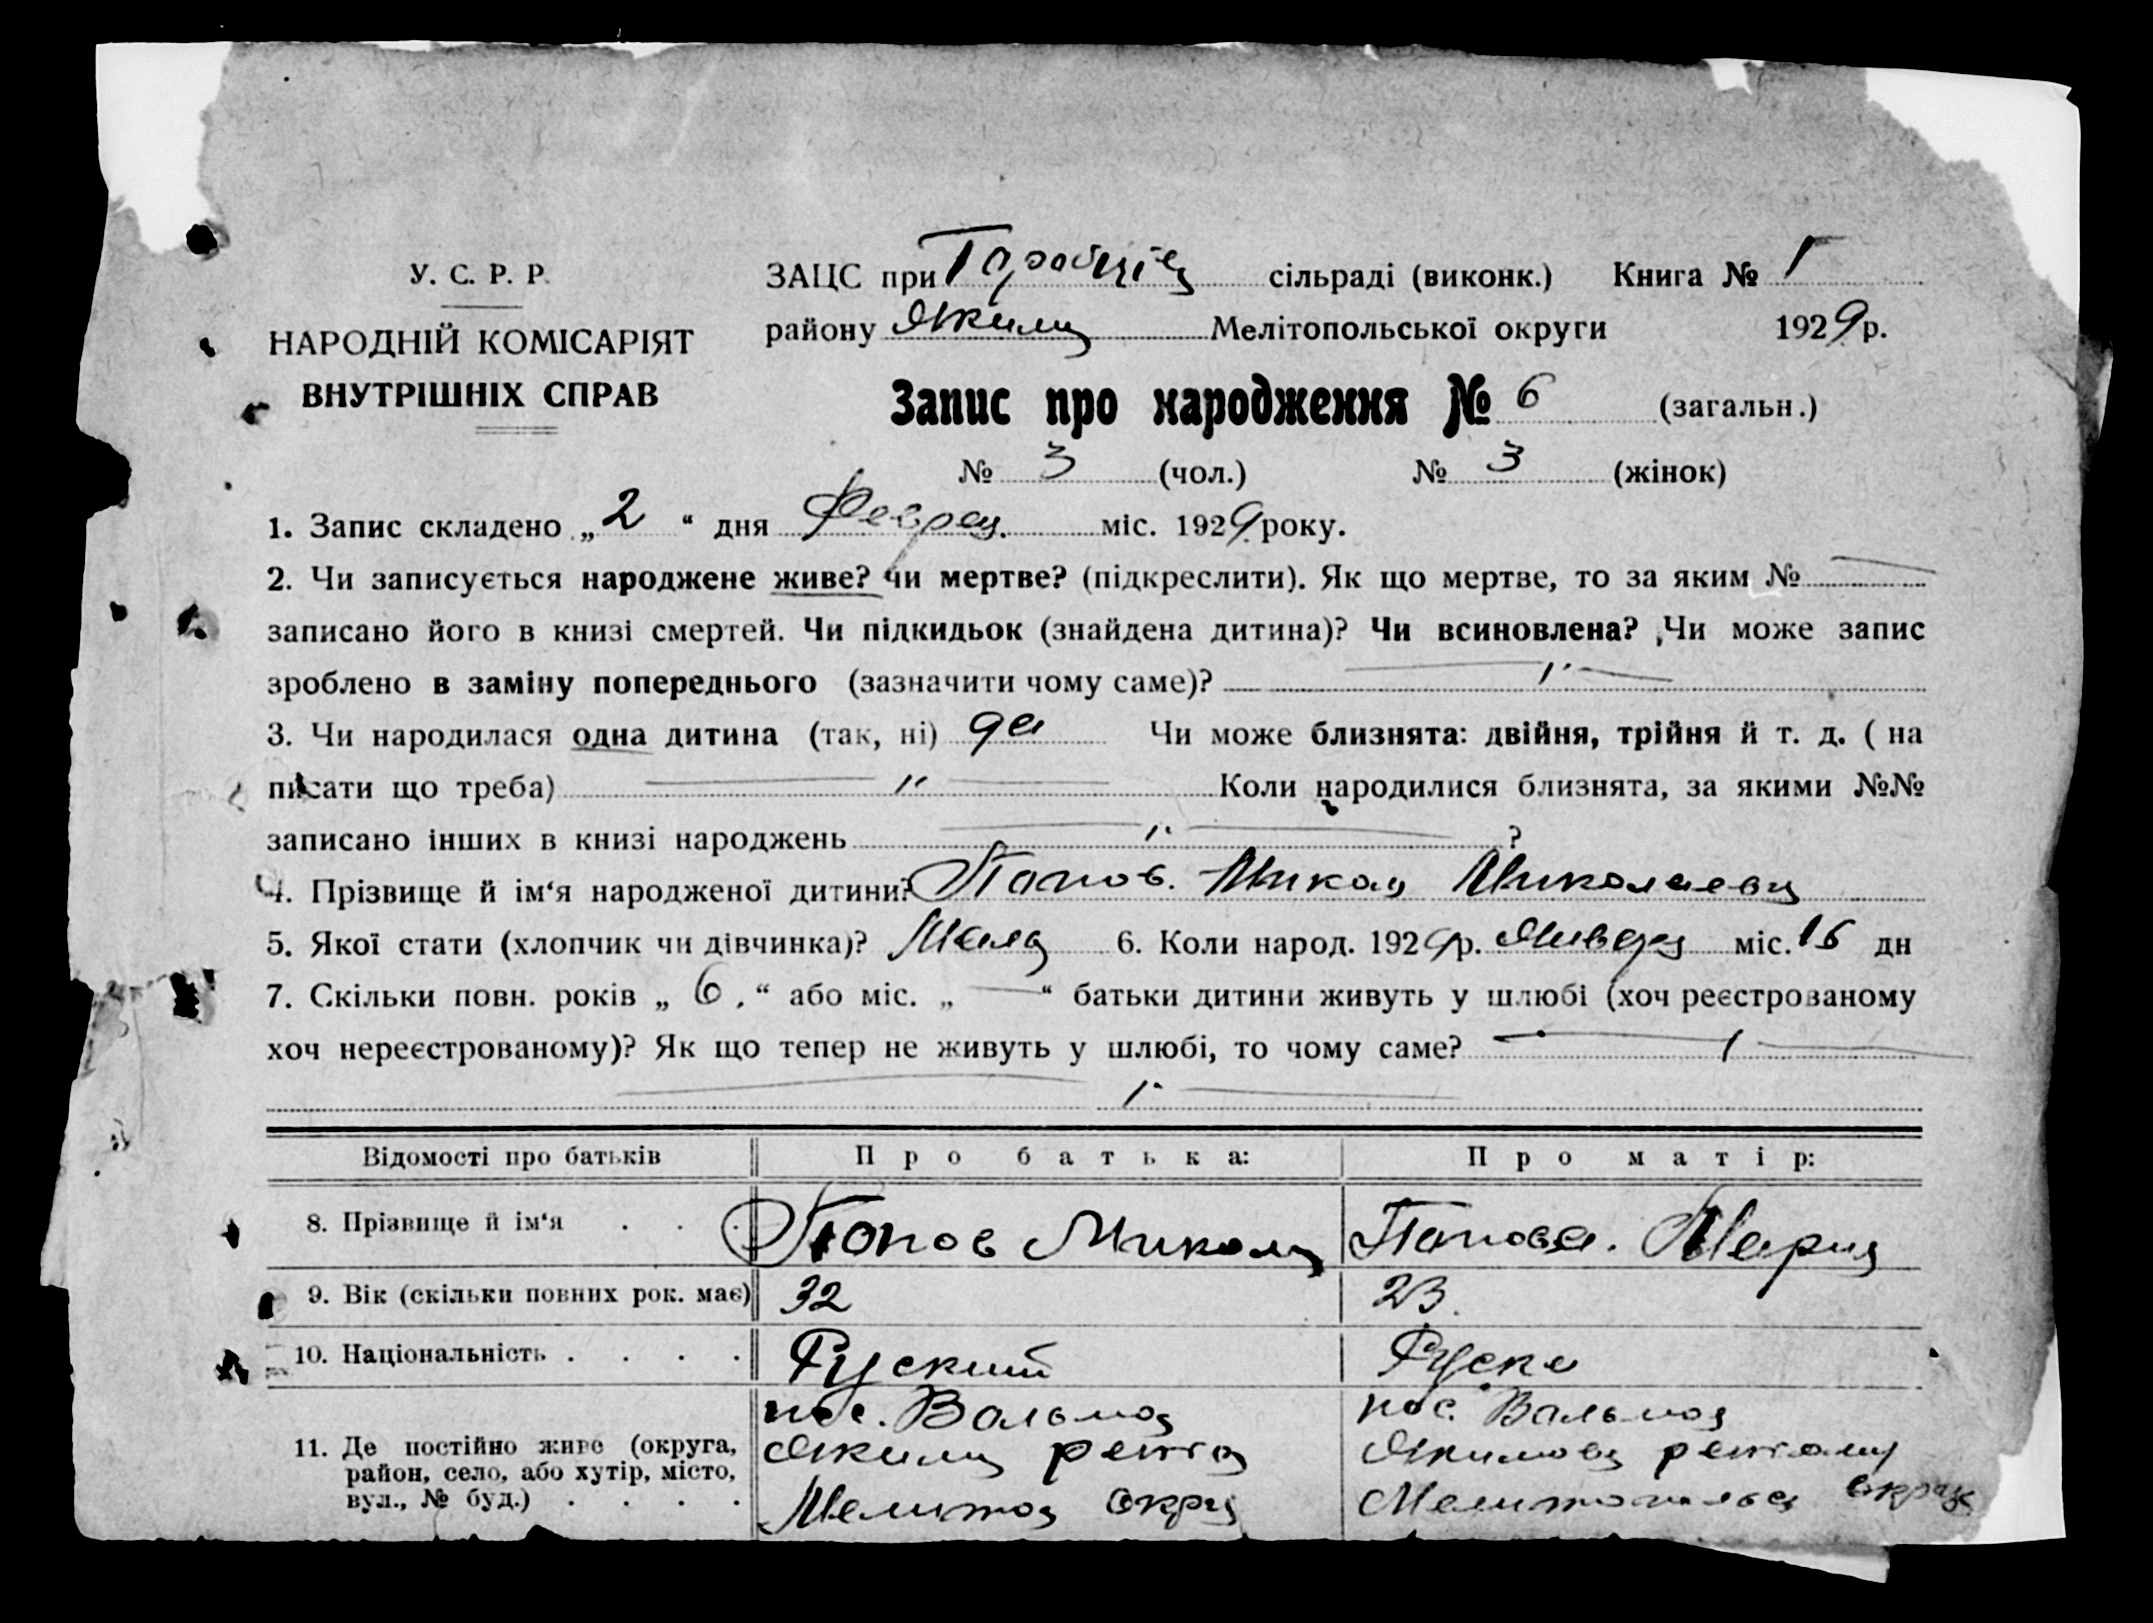 У. С. Р. Р.
НАРОДНІЙ КОМІСАРІЯТ
ВНУТРІШНІХ СПРАВ
ЗАЦС при сільраді (виконк.) Книга № 1
району Якими Мелітопольської округи 1929 р.
Запис про народження № 6 (загальн.)
№ 3 (чол.) № 3 (жінок)
1. Запис складено „ 2 “ дня Феврал. міс. 1929 року.
2. Чи записується народжене живе? чи мертве? (підкреслити). Як що мертве, то за яким №
записано його в книзі смертей. Чи підкидьок (знайдена дитина)? Чи всиновлена? Чи може запис
зроблено в заміну попереднього (зазначити чому саме)? — " —
3. Чи народилася одна дитина (так, ні) да Чи може близнята: двійня, трійня й т. д. ( на
писати що треба) — " — Коли народилися близнята, за якими №№
записано інших в книзі народжень — " — ?
4. Прізвище й ім‘я народженої дитини? Попов. Микол Николаеви
5. Якої стати (хлопчик чи дівчинка)? 6. Коли народ. 1929 р. Январ міс. 16 дн
7. Скільки повн. років „ 6. “ або міс. „ — “ батьки дитини живуть у шлюбі (хоч реєстрованому
хоч нереєстрованому)? Як що тепер не живуть у шлюбі, то чому саме? — " —
— " —
Відомості про батьків Про батька: Про матір:
8. Прізвище й ім‘я . . . Попов Микола Попова. Мария
9. Вік (скільки повних рок. має) 32 23.
10. Національність . . . . Руский Руска
11. Де постійно живе (округа, район, село, або хутір, місто, вул., № буд.) . . . .
пос. Вальмод пос. Вальмод
Якими район Якимов району
Мелитоп округ Мелитопольс округ